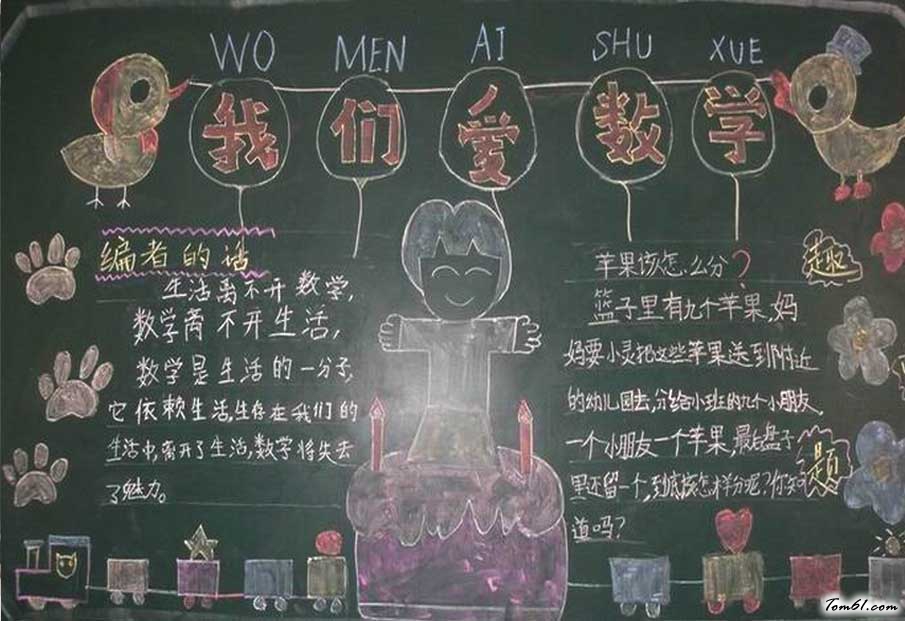 WO MEN AI SHU XUE
我们爱数学
编者的话
生活离不开数学,
数学离不开生活,
数学是生活的一分子,
它依赖生活,生存在我们的
生活中,离开了生活,数学将失去
了魅力。
苹果该怎么分?
篮子里有九个苹果,妈
妈要小灵把这些苹果送到附近
的幼儿园去,分给小班的九个小朋友。
一个小朋友一个苹果,最后盘子
里还留一个,到底该怎样分呢?你知
道吗?
趣
题
Tom61.com